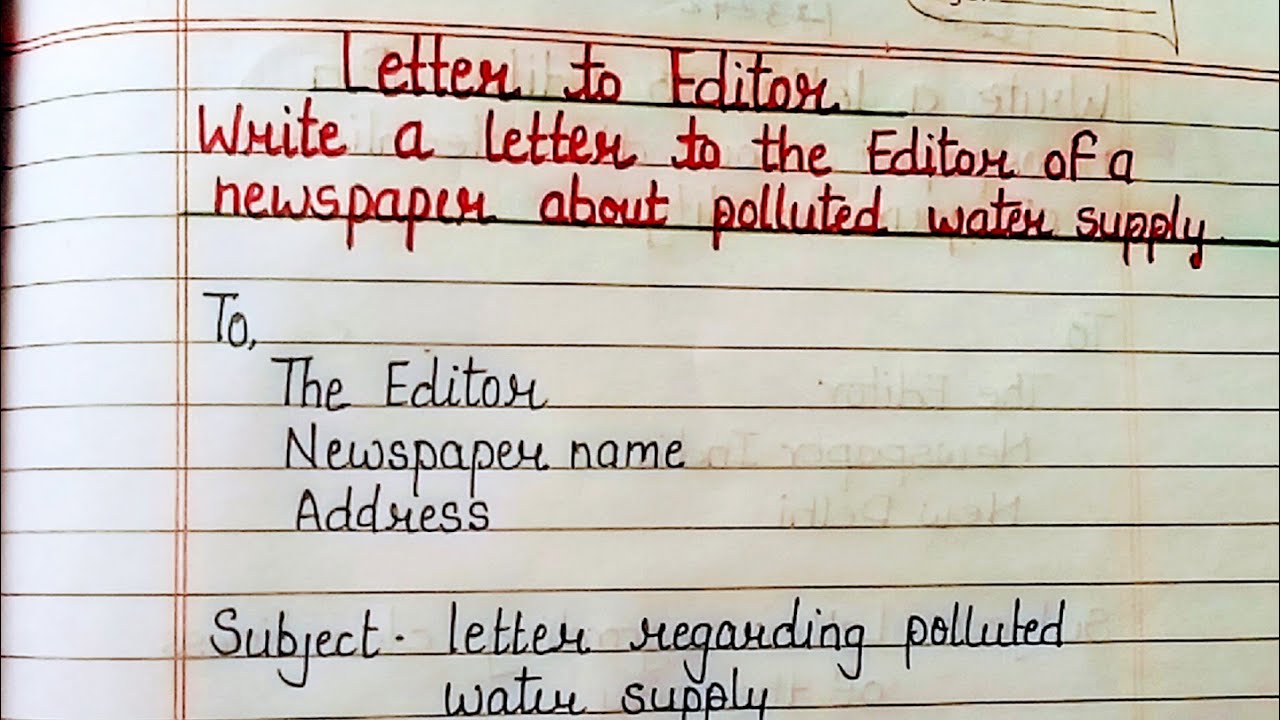 Letter to Editor
Write a letter to the Editor of a
newspaper about polluted water supply.
To,
The Editor
Newspaper name
Address
Subject. letter regarding polluted
water supply